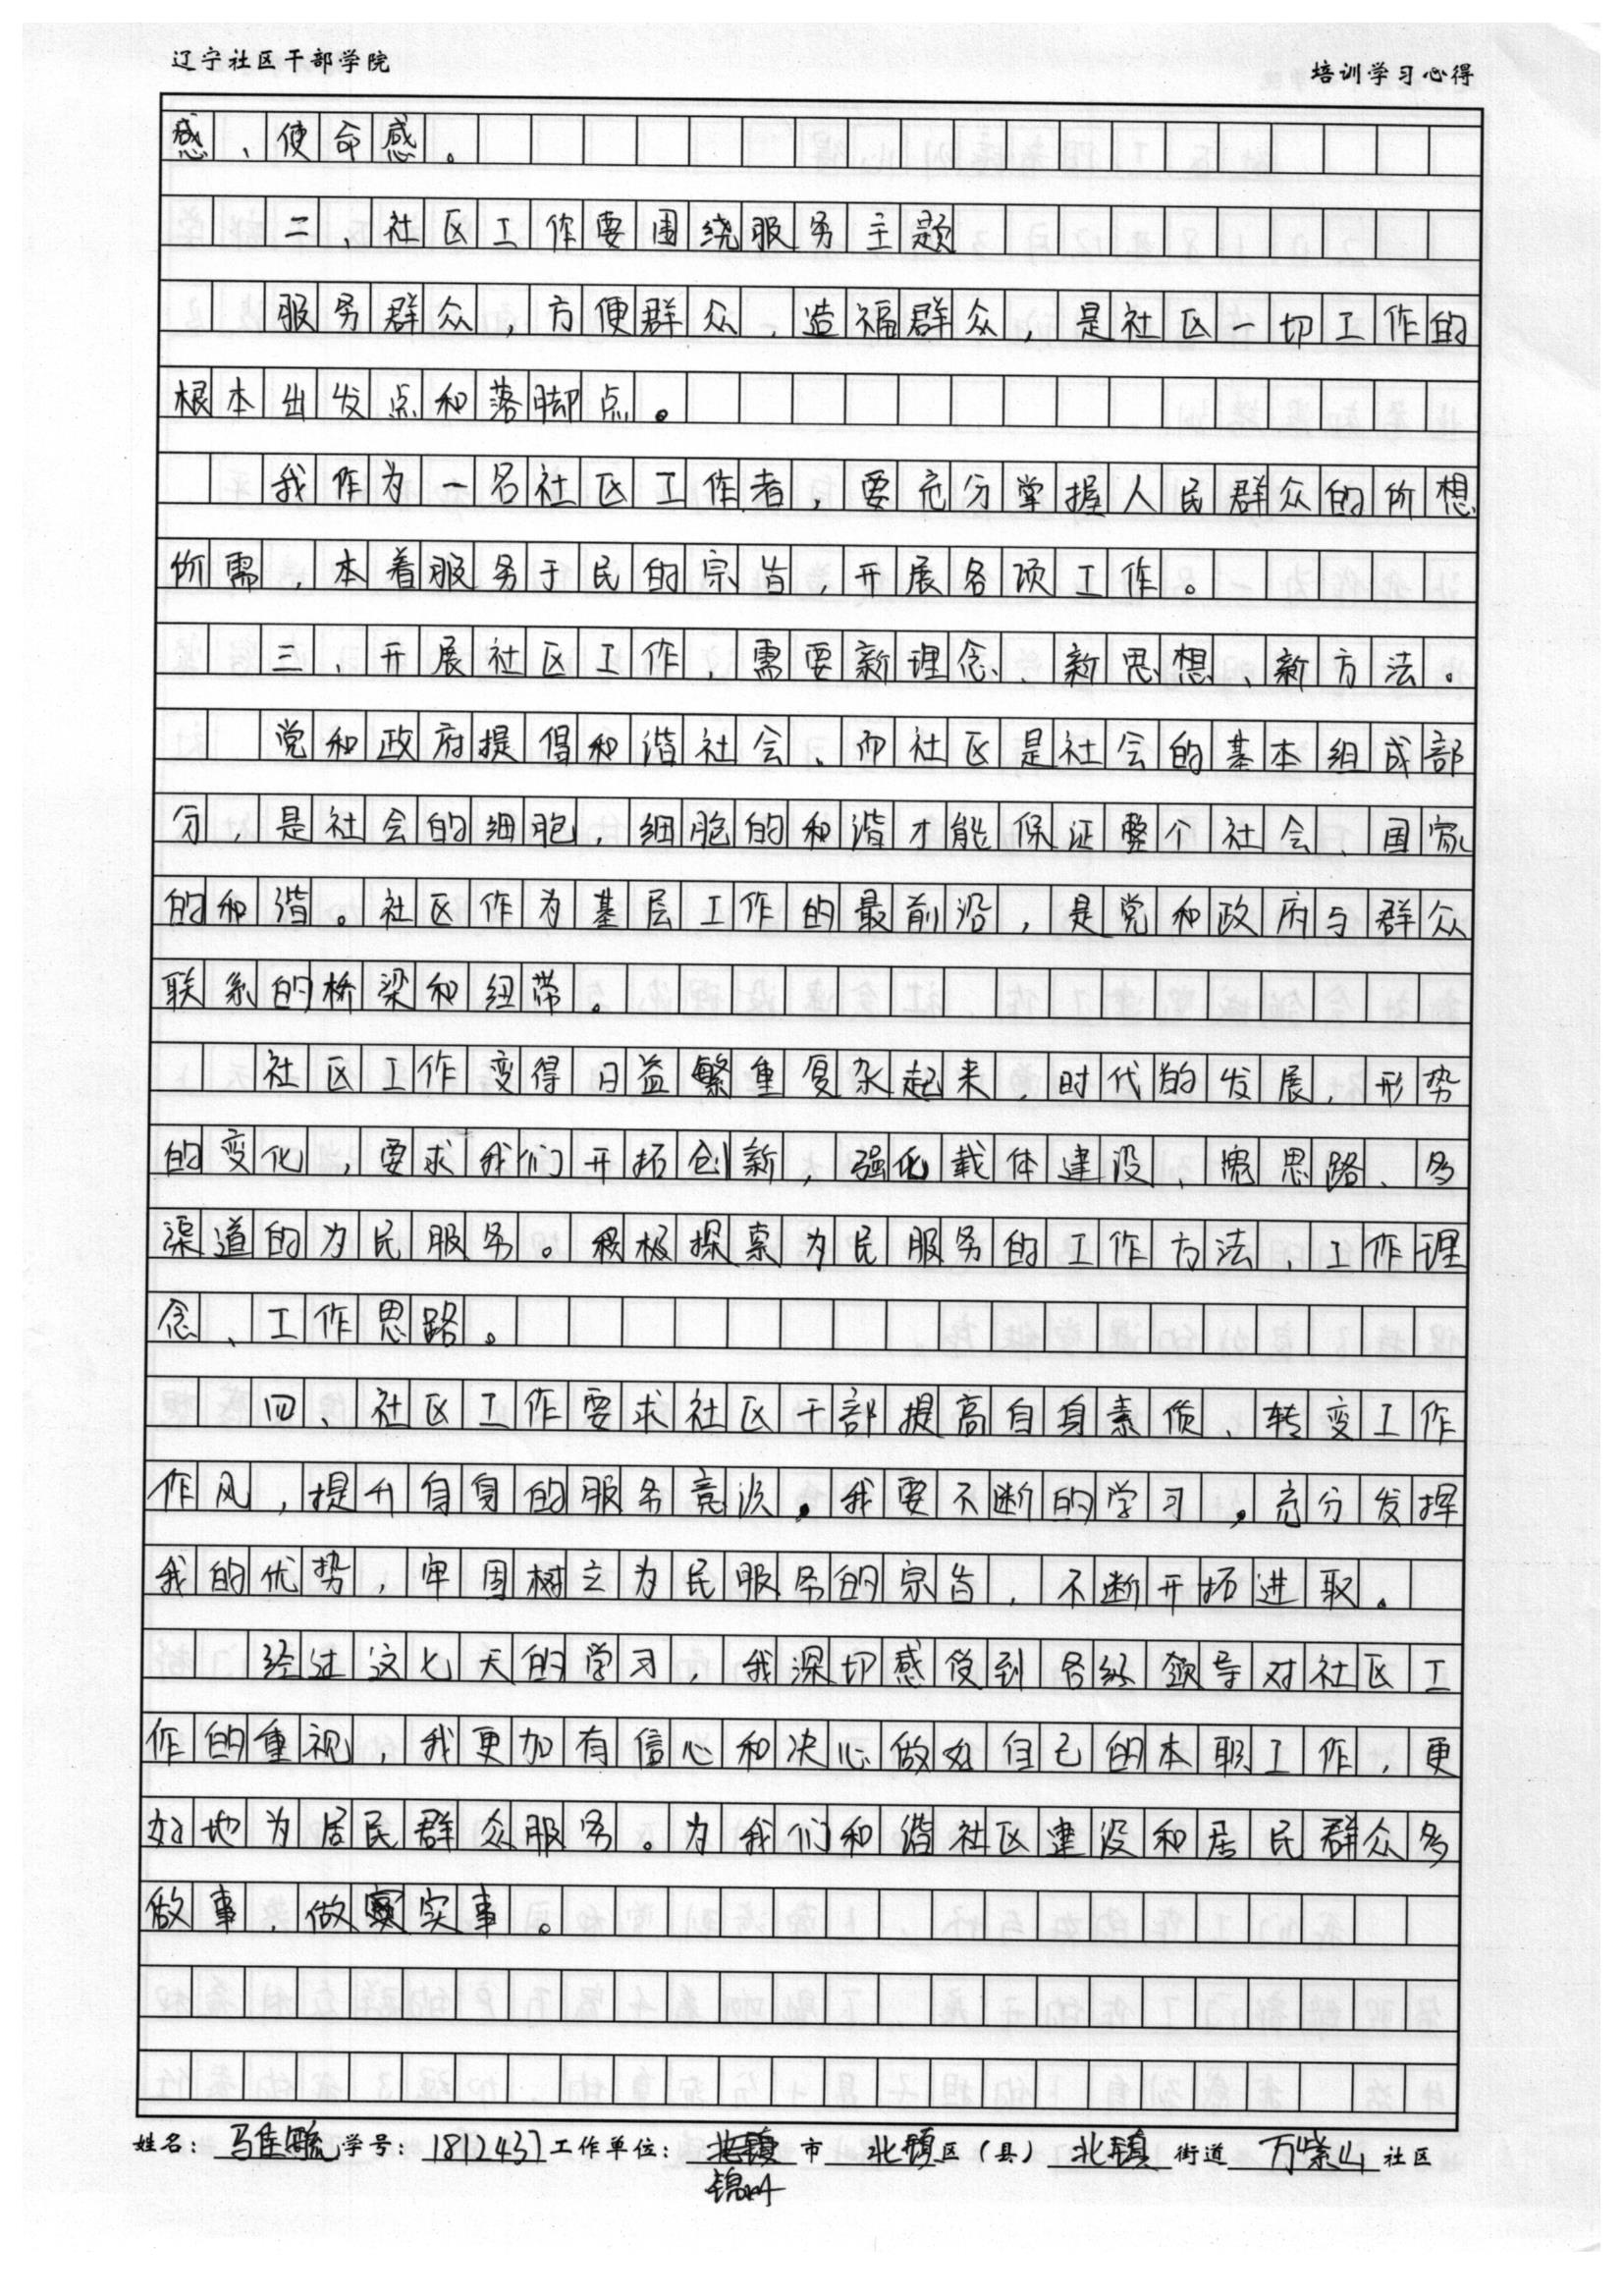 辽宁社区干部学院 培训学习心得
感、使命感。
二、社区工作要围绕服务主题
服务群众，方便群众，造福群众，是社区一切工作的
根本出发点和落脚点。
我作为一名社区工作者，要充分掌握人民群众的所想
所需，本着服务于民的宗旨，开展各项工作。
三、开展社区工作，需要新理念、新思想、新方法。
党和政府提倡和谐社会、而社区是社会的基本组成部
分，是社会的细胞，细胞的和谐才能保证整个社会、国家
的和谐。社区作为基层工作的最前沿，是党和政府与群众
联系的桥梁和纽带。
社区工作变得日益繁重复杂起来，时代的发展，形势
的变化，要求我们开拓创新，强化载体建设、宽思路、多
渠道的为民服务。积极探索为民服务的工作方法、工作理
念、工作思路。
四、社区工作要求社区干部提高自身素质、转变工作
作风，提升自身的服务意识。我要不断的学习，充分发挥
我的优势，牢固树立为民服务的宗旨，不断开拓进取。
经过这七天的学习，我深切感受到各级领导对社区工
作的重视，我更加有信心和决心做好自己的本职工作，更
好地为居民群众服务。为我们和谐社区建设和居民群众多
做事，做实实事。
姓名：马佳 学号：1812437 工作单位：北镇 市 北镇区（县） 北镇 街道 万紫山 社区
锦州